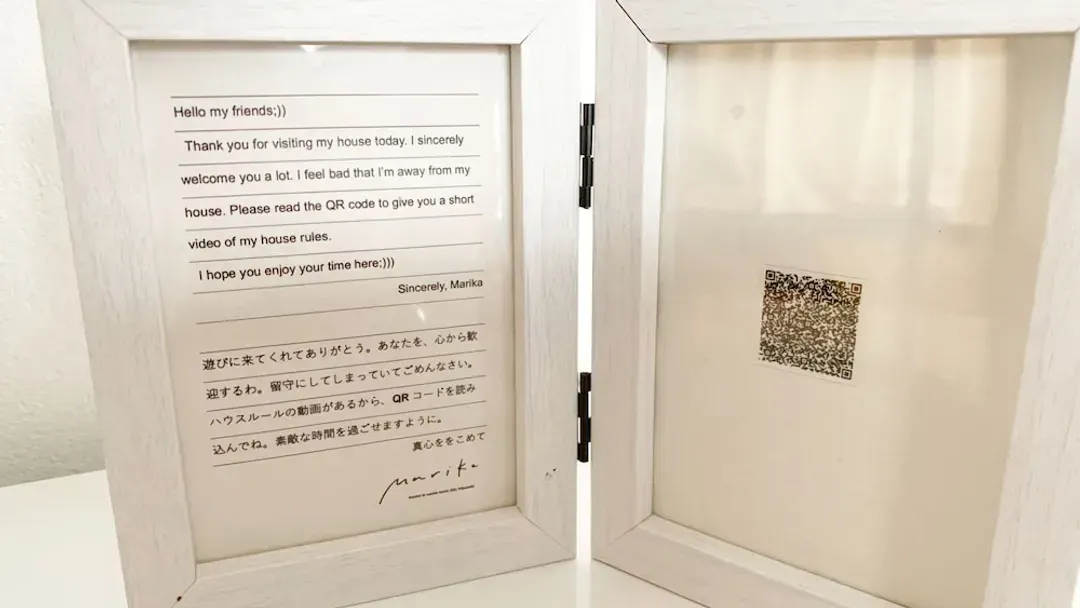 Hello my friends;))
Thank you for visiting my house today. I sincerely
welcome you a lot. I feel bad that I'm away from my
house. Please read the QR code to give you a short
video of my house rules.
I hope you enjoy your time here;)))
Sincerely, Marika
遊びに来てくれてありがとう。あなたを、心から歓
迎するわ。留守にしてしまっていてごめんなさい。
ハウスルールの動画があるから、QRコードを読み
込んでね。素敵な時間を過ごせますように。
真心ををこめて
Marika